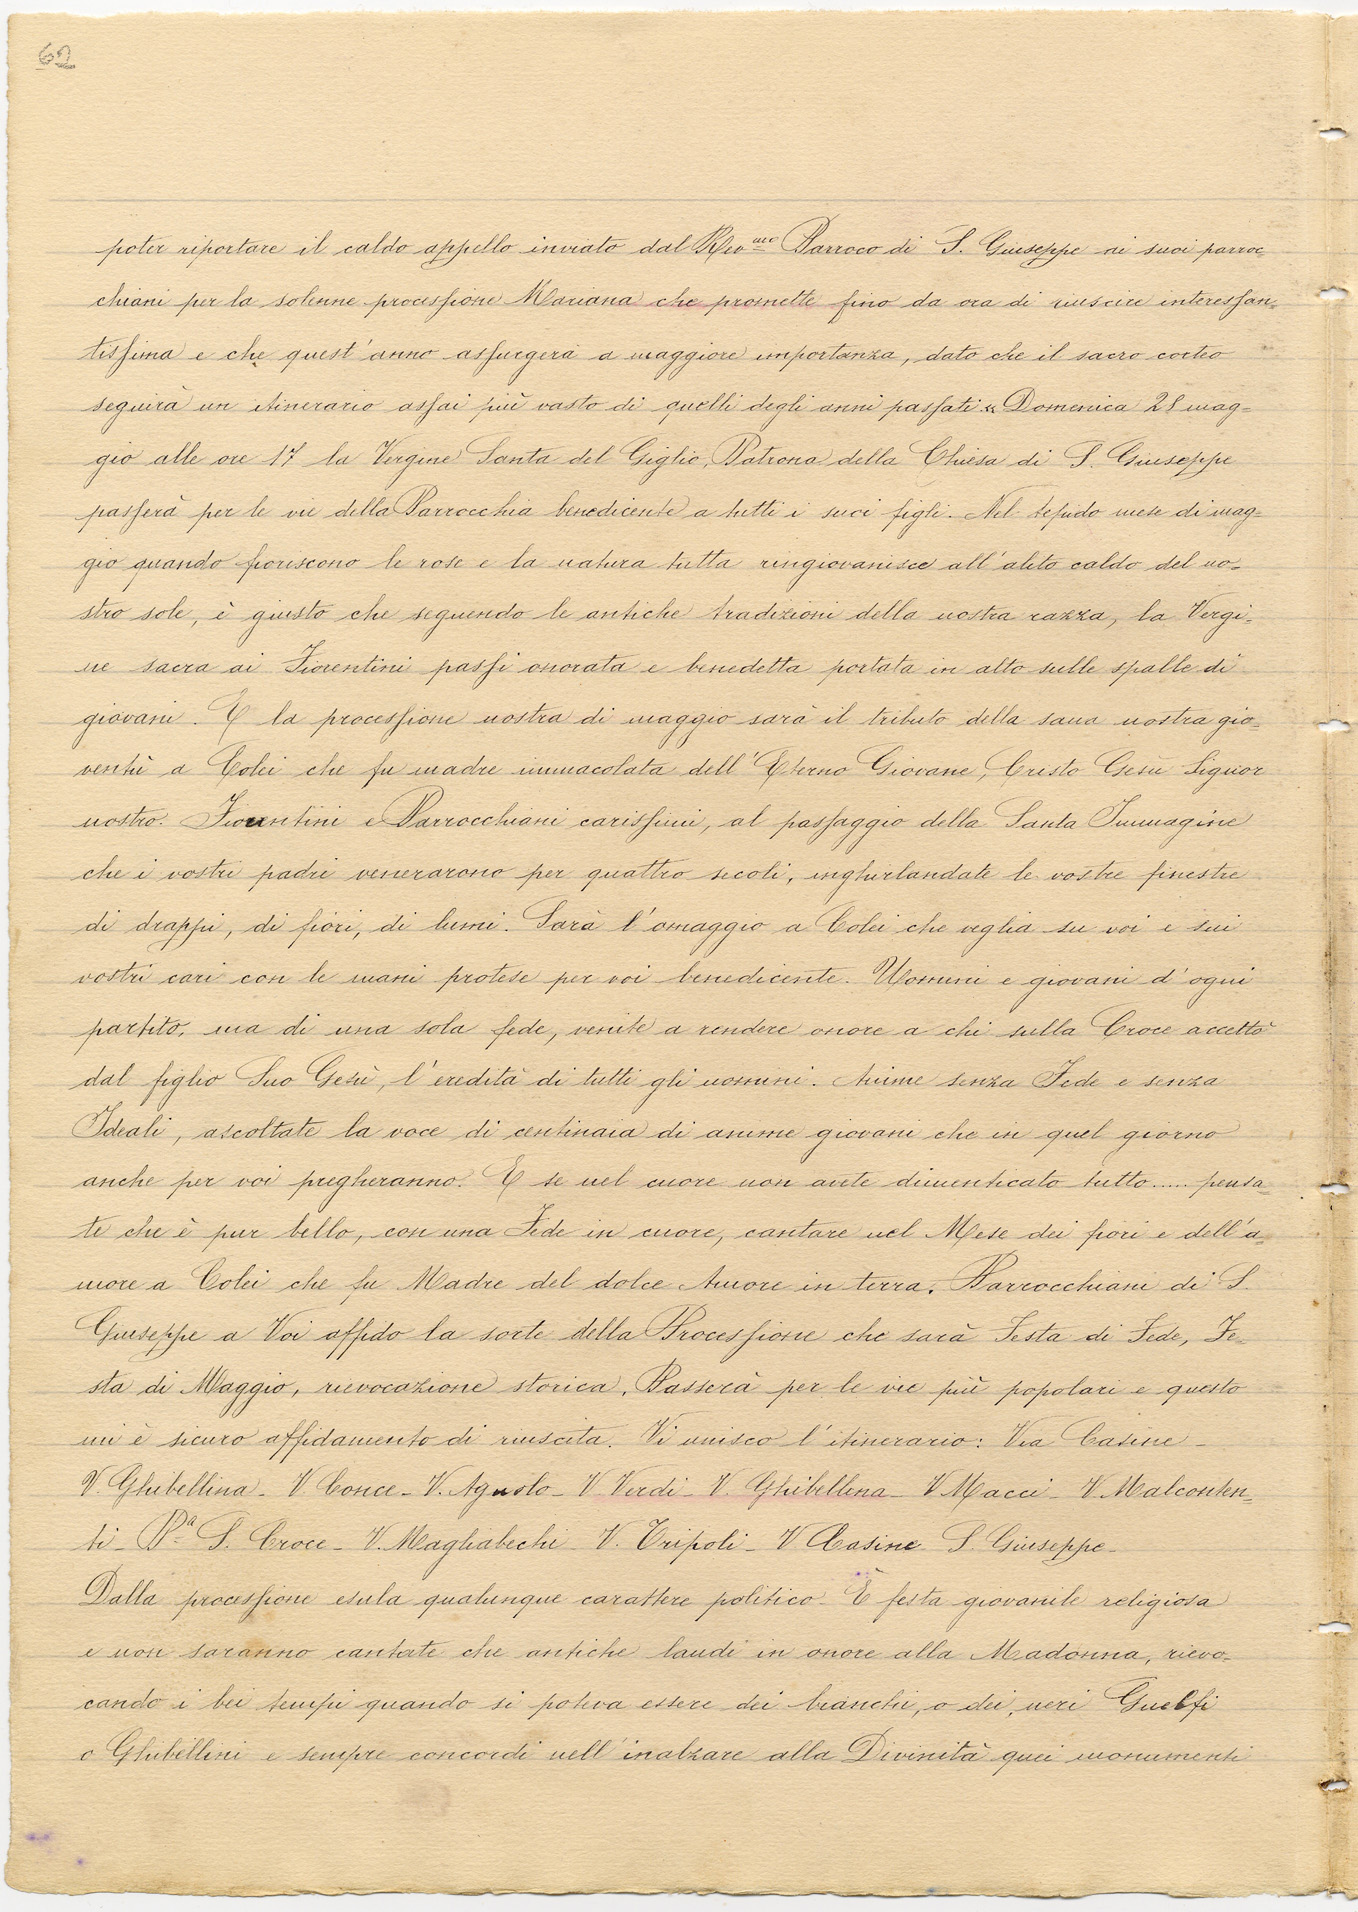 62
poter riportare il caldo appello inviato dal Rev.mo Parroco di S. Giuseppe ai suoi parroc
chiani per la solenne processione Mariana che promette fino da ora di riuscire interessan-
tissima e che quest'anno assurgerà a maggiore importanza, dato che il sacro corteo
seguirà un itinerario assai più vasto di quelli degli anni passati "Domenica 28 mag-
gio alle ore 17 la Vergine Santa del Giglio, Patrona della Chiesa di S. Giuseppe
passerà per le vie della Parrocchia benedicente a tutti i suoi figli. Nel tepido mese di mag-
gio quando fioriscono le rose e la natura tutta ringiovanisce all'alito caldo del no-
stro sole, è giusto che seguendo le antiche tradizioni della nostra razza, la Vergi-
ne sacra ai Fiorentini passi onorata e benedetta portata in alto sulle spalle di
giovani. E la processione nostra di maggio sarà il tributo della sana nostra gio-
ventù a Colei che fu madre immacolata dell'Eterno Giovane, Cristo Gesù Signor
nostro. Fiorentini e Parrocchiani carissimi, al passaggio della Santa Immagine
che i vostri padri venerarono per quattro secoli, inghirlandate le vostre finestre
di drappi, di fiori, di lumi. Sarà l'omaggio a Colei che veglia su voi e sui
vostri cari con le mani protese per voi benedicente. Uomini e giovani d'ogni
partito, ma di una sola fede, venite a rendere onore a chi sulla Croce accettò
dal figlio Suo Gesù, l'eredità di tutti gli uomini. Anime senza Fede e senza
Ideali, ascoltate la voce di centinaia di anime giovani che in quel giorno
anche per voi pregheranno. E se nel cuore non avete dimenticato tutto..... pensa-
te che è pur bello, con una Fede in cuore, cantare nel Mese dei fiori e dell'a-
more a Colei che fu Madre del dolce Amore in terra. Parrocchiani di S.
Giuseppe a Voi affido la sorte della Processione che sarà Festa di Fede, Fe-
sta di Maggio, rievocazione storica. Passerà per le vie più popolari e questo
mi è sicuro affidamento di riuscita. Vi unisco l'itinerario: Via Casine -
V. Ghibellina - V Conce - V. Agnolo - V Verdi - V. Ghibellina - V Macci - V Malconten-
ti - P.a S. Croce - V. Magliabechi V. Tripoli - V Casine S. Giuseppe -
Dalla processione esula qualunque carattere politico. È festa giovanile religiosa
e non saranno cantate che antiche laudi in onore alla Madonna, rievo-
cando i bei tempi quando si poteva essere dei bianchi, o dei neri Guelfi
o Ghibellini e sempre concordi nell'inalzare alla Divinità quei monumenti